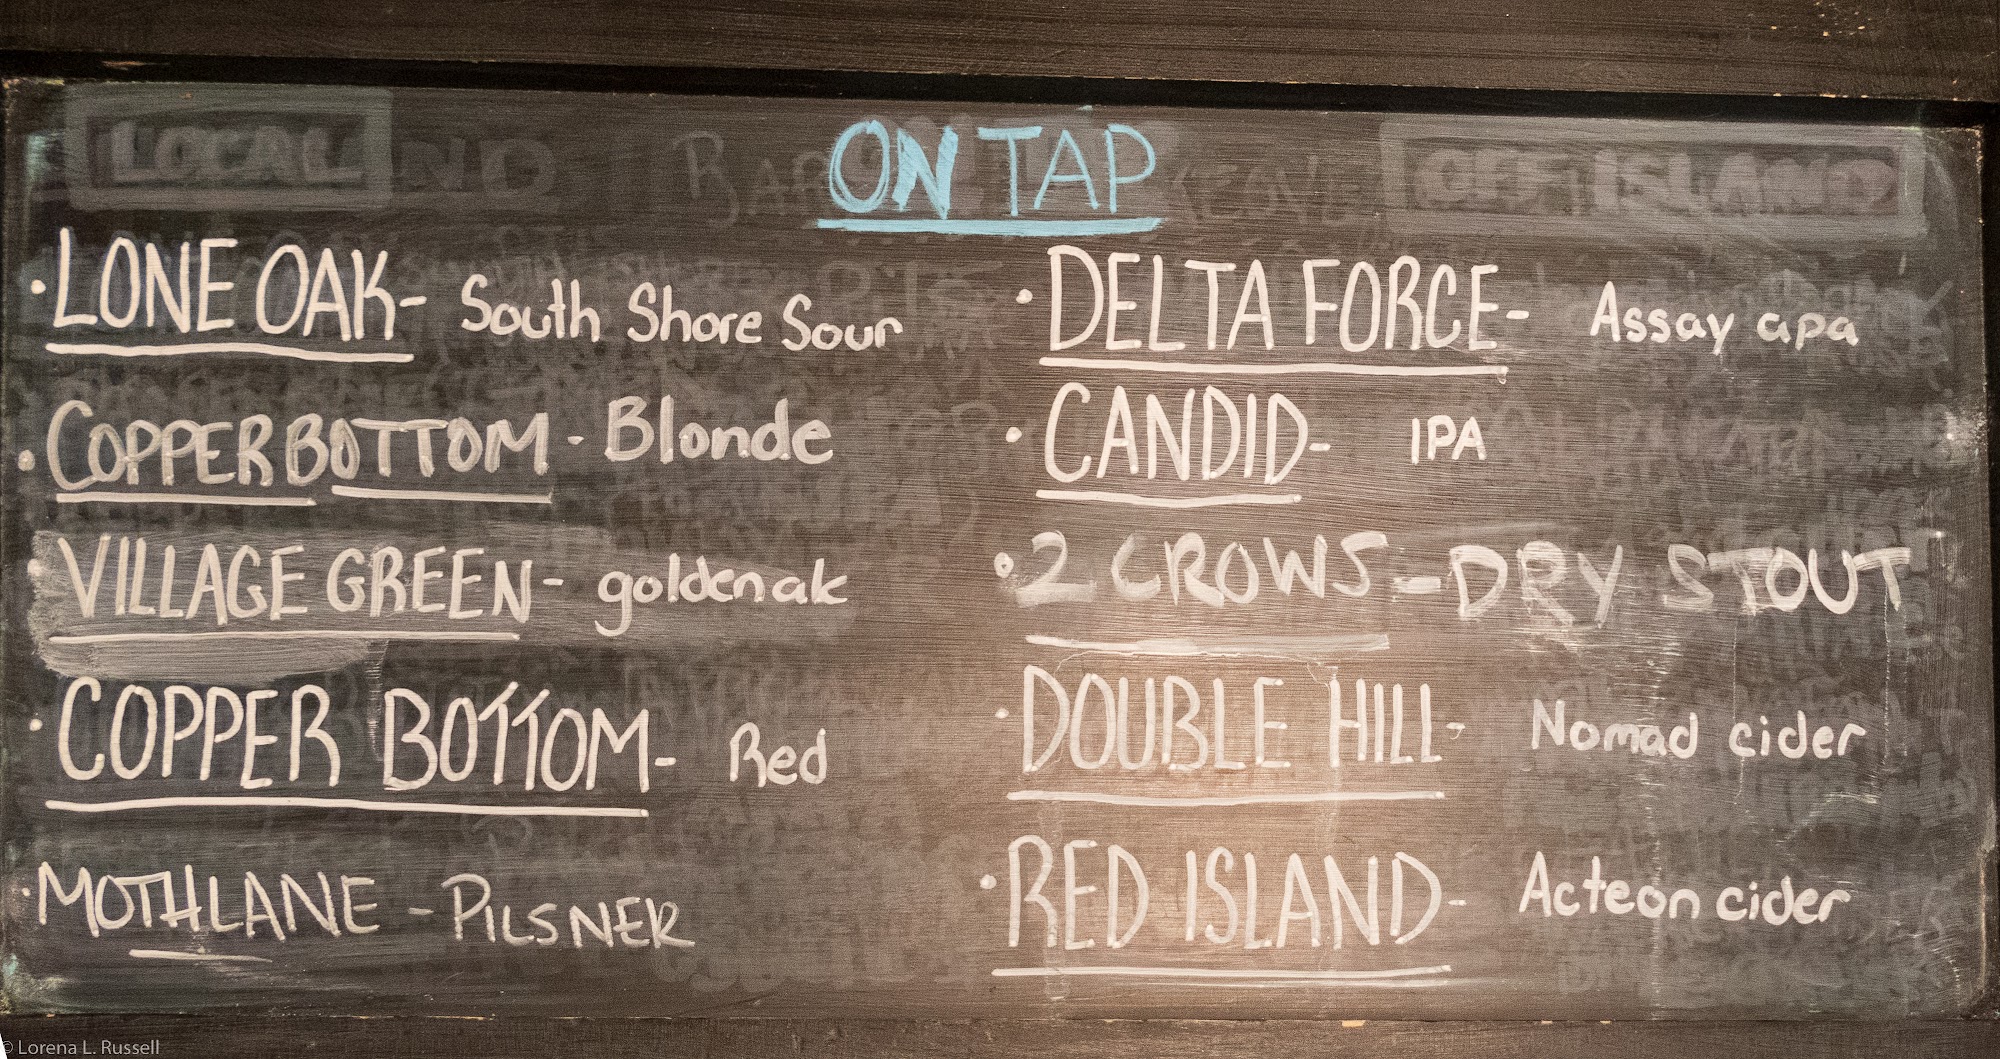 ON TAP
LOCAL
OFF ISLAND
·LONE OAK- South Shore Sour
·COPPER BOTTOM - Blonde
·VILLAGE GREEN- golden ak
·COPPER BOTTOM- Red
·MOTHLANE - PILSNER
·DELTA FORCE- Assay apa
·CANDID- IPA
·2 CROWS-DRY STOUT
·DOUBLE HILL- Nomad cider
·RED ISLAND- Acteon cider
© Lorena L. Russell